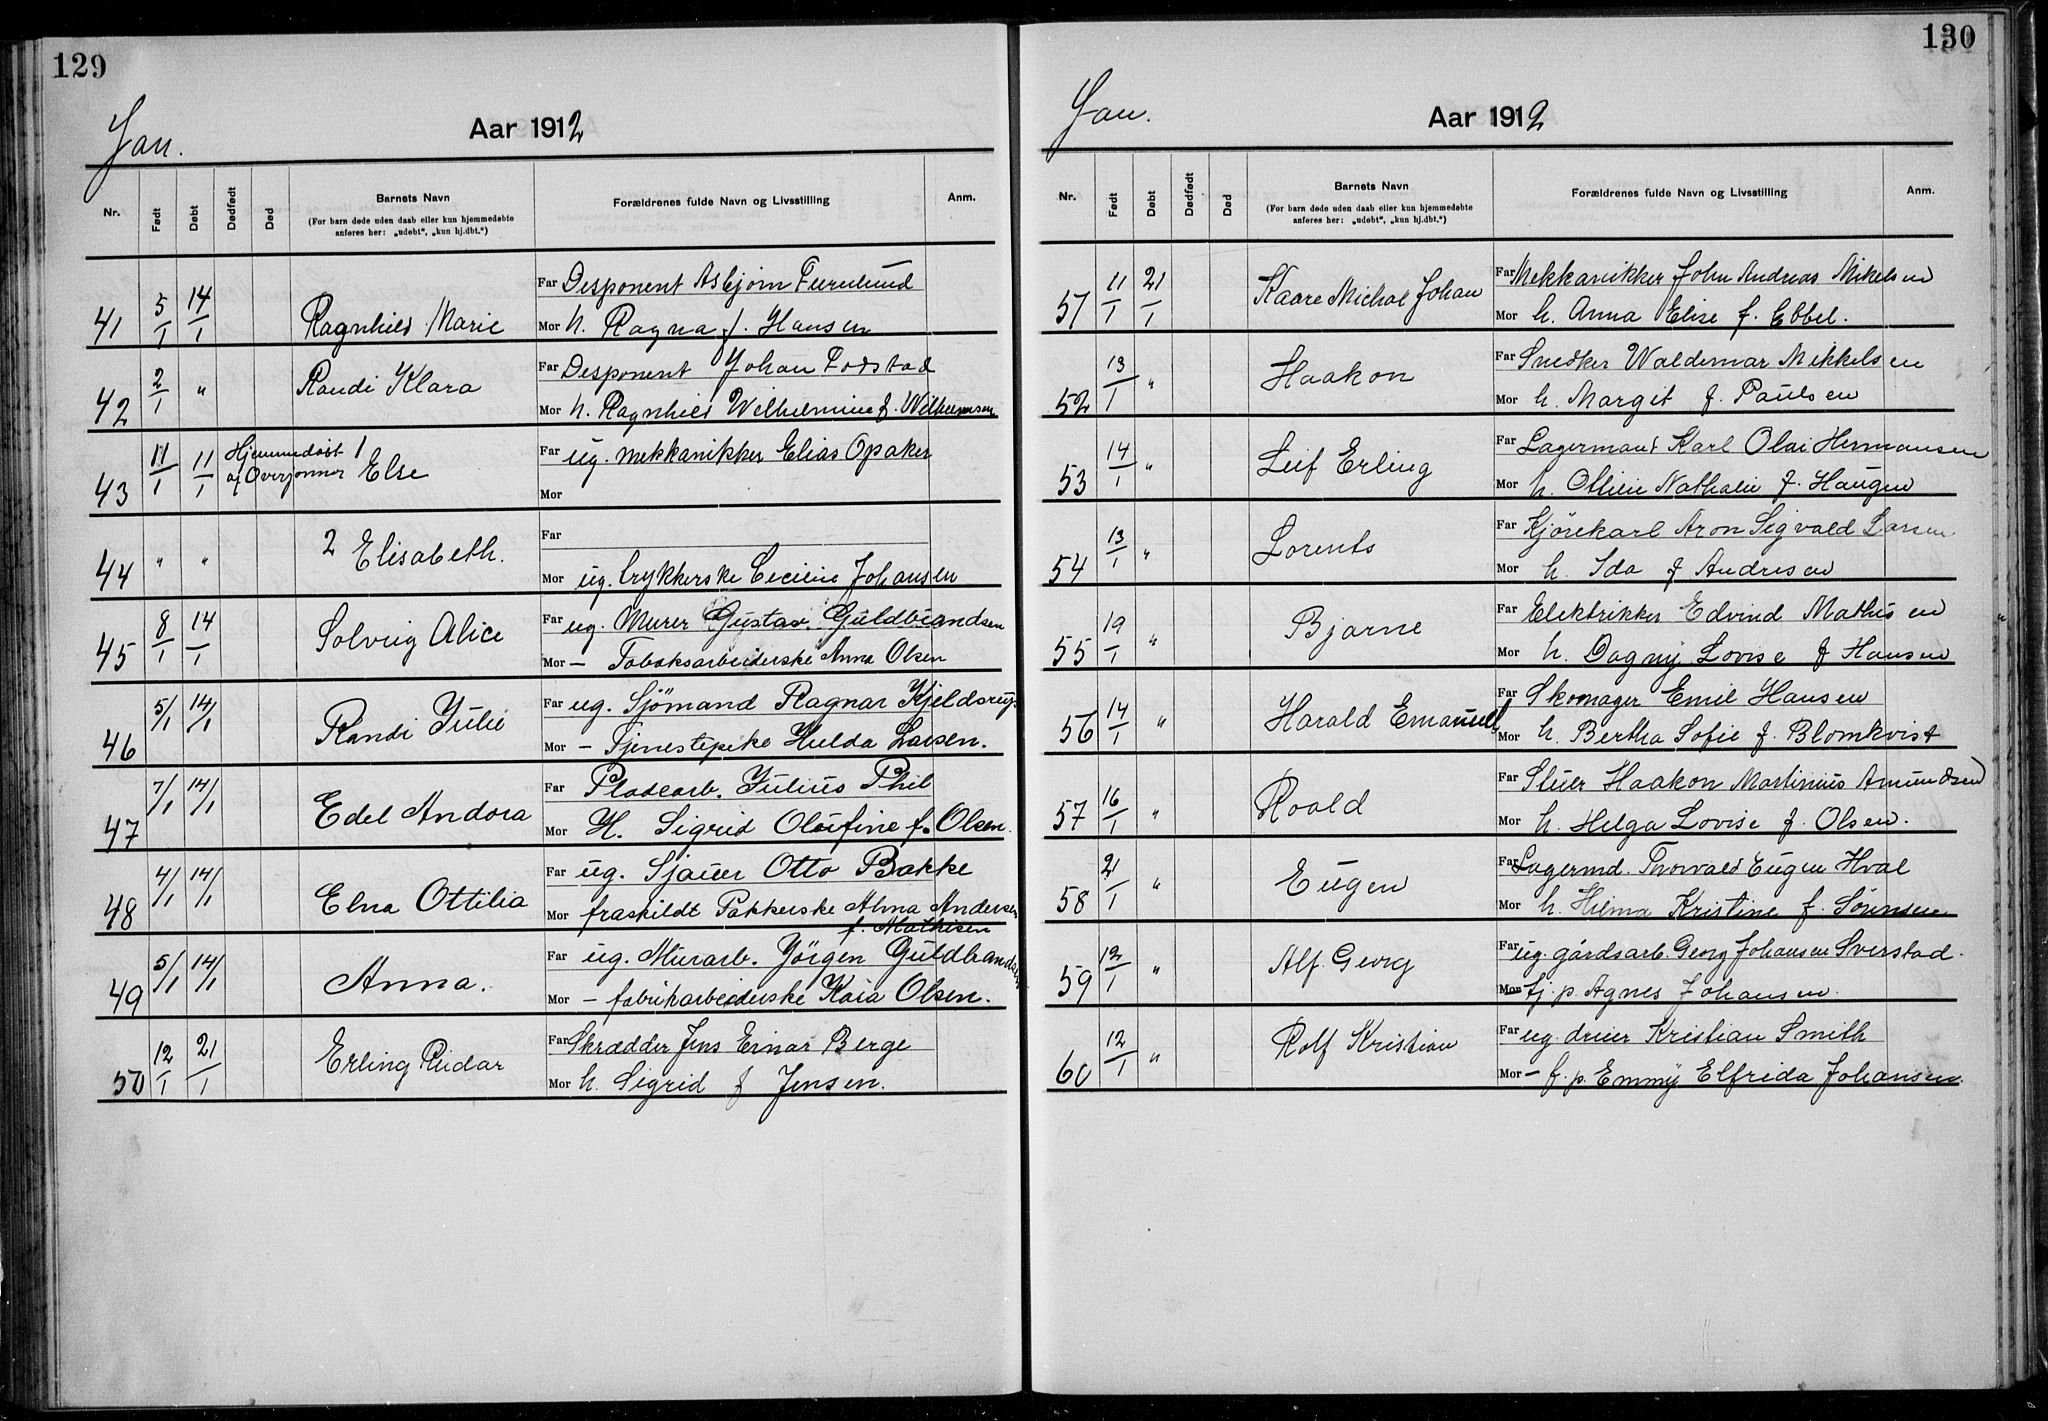 129
Jan.
Aar 1912
Nr. Født Døbt Dødfødt Død Barnets Navn Forældrenes fulde Navn og Livsstilling Anm.
(For barn døde uden daab eller kun hjemmedøbte
anføres her: „udøbt“, „kun hj.dbt.“)
Far Desponent Asbjørn
41 5/1 14/1 Ragnhild Marie Mor h. Ragna f. Hansen
Far Desponent Johan Fodstad
42 2/1 " Randi Klara Mor h. Ragnhild Wilhelmine f. Wilhelmsen
43 11/1 11/1 Hjemmedøbt 1 Far ug. mekkanikker Elias Opaker
af Else Mor
44 " " 2 Elisabeth. Far
Mor ug. Cecilie Johansen
45 8/1 14/1 Solveig Alice Far ug. Murer Gustav Guldbrandsen
Mor — Tobaksarbeiderske Anna Olsen
46 5/1 14/1 Randi Julie Far ug. Sjömand Ragnar Kjeldsrup
Mor — Tjenestepike Hulda Larsen.
47 7/1 14/1 Edel Andora Far Pladearb. Julius Phil
Mor H. Sigrid Olufine f. Olsen.
48 4/1 14/1 Elna Ottilia Far ug. Sjauer Otto Bakke
Mor fraskildt Pakkerske Alma Andersen
f. Mathisen
49 5/1 14/1 Anna. Far ug. Murarb. Jörgen Guldbrandsen
Mor — fabrikarbeiderske Kaia Olsen.
50 12/1 21/1 Erling Reidar Far Skrædder Jens Einar Berge
Mor h. Sigrid f Jensen.
130
Jan.
Aar 1912
Nr. Født Døbt Dødfødt Død Barnets Navn Forældrenes fulde Navn og Livsstilling Anm.
(For barn døde uden daab eller kun hjemmedøbte
anføres her: „udøbt“, „kun hj.dbt.“)
51 11/1 21/1 Kaare Michal Johan Far Mekkanikker John Andreas Mikelsen
Mor h. Anna Elise f. Ebbel.
52 13/1 " Haakon Far Snedker Waldemar Mikkelsen
Mor h. Margit f. Paulsen
53 14/1 " Leif Erling Far Lagermand Karl Olai Hermansen
Mor h. Ottilie Nathalie f. Haugen
54 13/1 " Lorents Far Kjörekarl Aron Sigvald Larsen
Mor h. Ida f Andresen
55 19/1 " Bjarne Far Elektrikker Edvind Mathisen
Mor h. Dagny Lovise f Hansen
56 14/1 " Harald Emanuel Far Skomager Emil Hansen
Mor h. Bertha Sofie f. Blomkvist
57 16/1 " Roald Far Haakon Martinius Amundsen
Mor h. Helga Lovise f. Olsen.
58 21/1 " Eugen Far Lagermd. Thorvald Eugen Hval
Mor h. Hilma Kristine f. Sørensen
59 12/1 " Alf Georg Far ug. gårdsarb. Georg Johansen Sverstad.
Mor tj. p. Agnes Johansen.
60 12/1 " Rolf Kristian Far ug. dreier Kristian Smith
Mor — f. p. Emmy Elfrida Johansen.